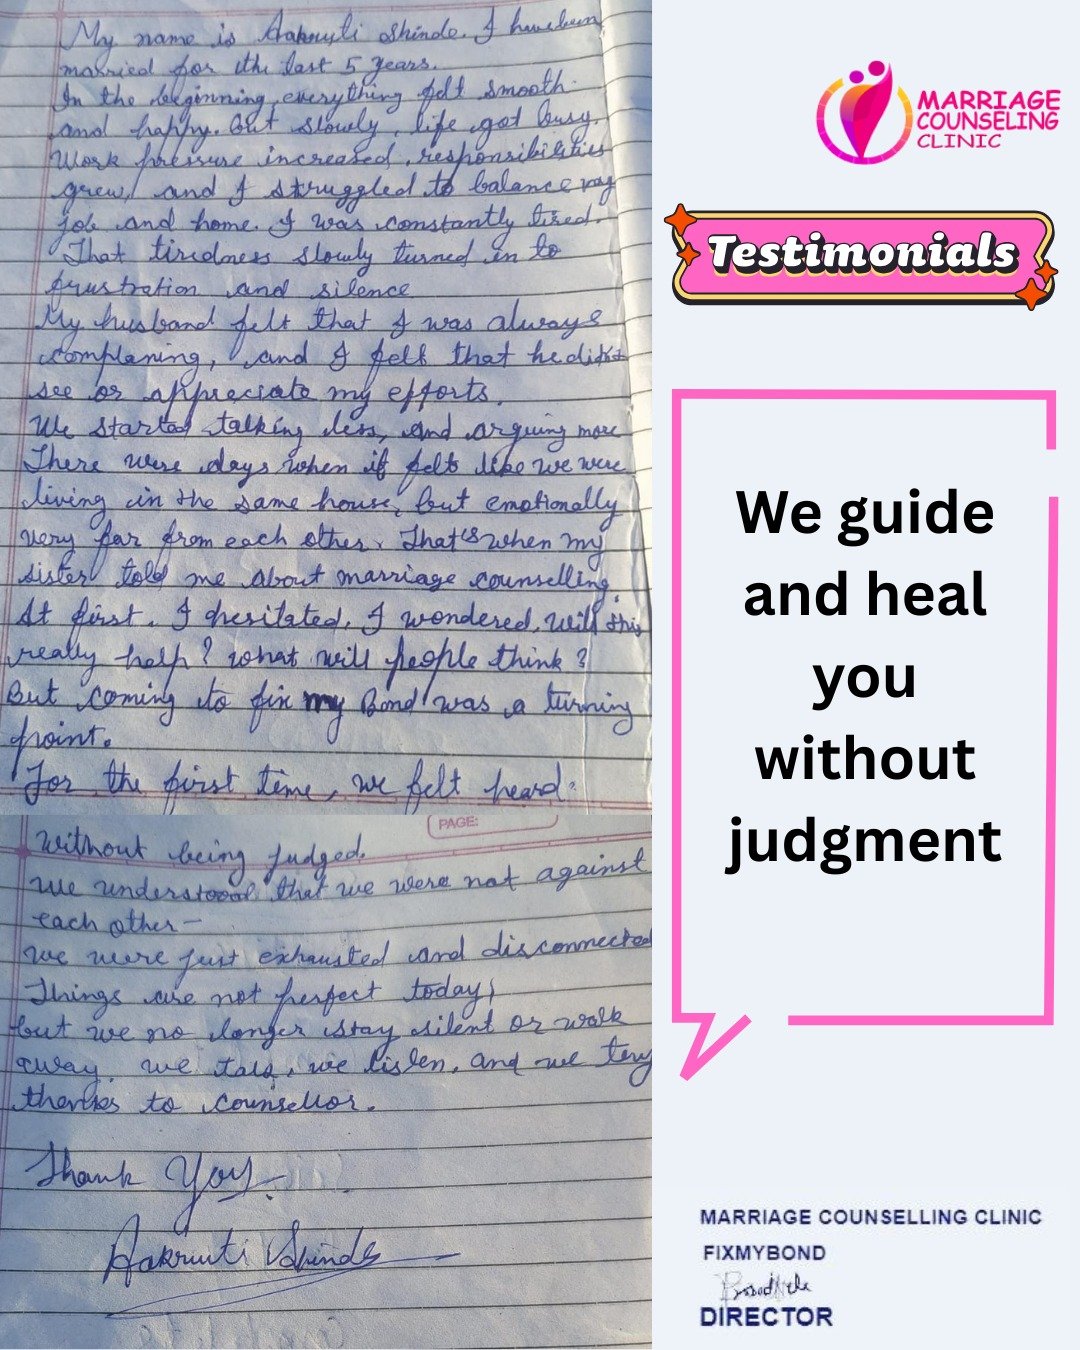 My name is Aakruti Shinde. I have been
married for the last 5 years.
In the beginning, everything felt smooth
and happy. But slowly, life got busy.
Work pressure increased, responsibilities
grew, and I struggled to balance my
job and home. I was constantly tired.
That tiredness slowly turned in to
frustration and silence
My husband felt that I was always
complaning, and I felt that he didnt
see or appreciate my efforts.
We started talking less, and arguing more
There were days when it felt like we were
living in the same house, but emotionally
very far from each other. That's when my
sister told me about marriage counselling.
At first, I hesitated, I wondered, will this
really help? what will people think?
But coming to fix my Bond was a turning
point.
For the first time, we felt heard.
PAGE:
without being judged.
we understood that we were not against
each other-
we were just exhausted and disconnected
Things are not perfect today,
but we no longer stay silent or walk
away. we talk, we listen, and we
to counsellor.
Thank You.
Aakruti Shinde
MARRIAGE
COUNSELING
CLINIC
Testimonials
We guide
and heal
you
without
judgment
MARRIAGE COUNSELLING CLINIC
FIXMYBOND
DIRECTOR